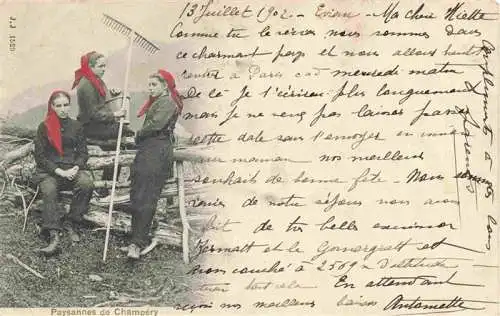 J.J. 1539
13 Juillet 1902 - Evian - Ma chère Miette
Comme tu le vois nous sommes dans
ce charmant pays et nous allons bientôt
rentrer à Paris mercredi matin
De là je t'écrirai plus longuement
mais je ne veux pas laisser passer
cette date sans t'envoyer
maman nos meilleurs
souhaits de bonne fête - Nous sommes
de notre séjour nous avons
fait de très belles excursions
Zermatt et le Gornergratt et
avons couché à 2569 m d'altitude
tout cela. En attendant
reçois nos meilleurs baisers Antoinette
Paysannes de Champéry